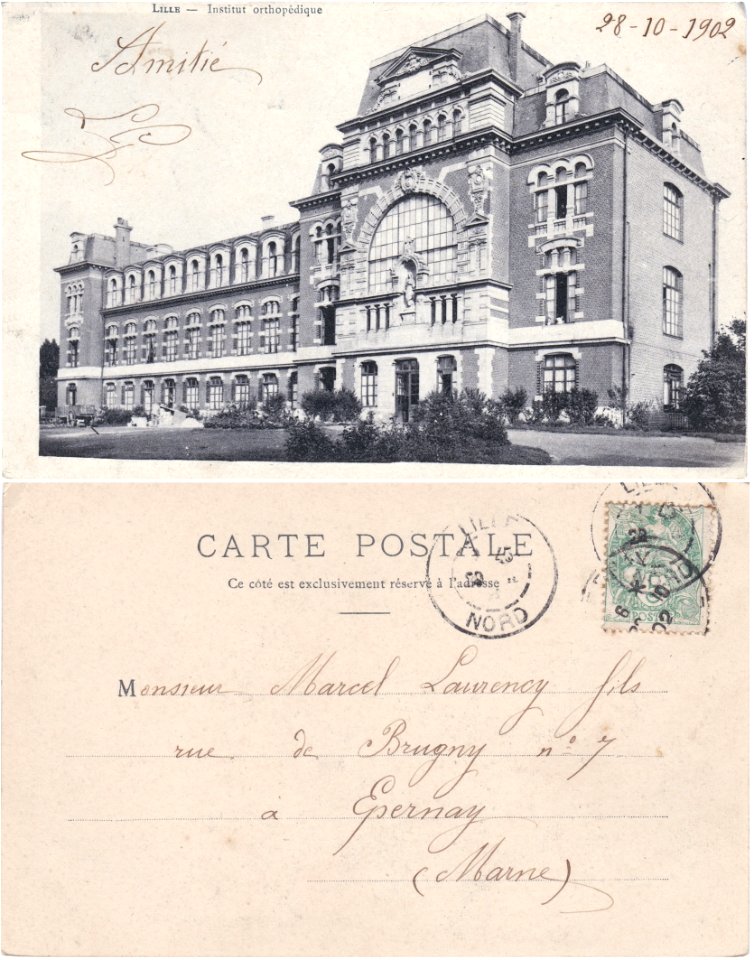 LILLE — Institut orthopédique
28-10-1902
Amitié
CARTE POSTALE
Ce côté est exclusivement réservé à l'adresse
LILLE
NORD
Monsieur Marcel Laurency fils
rue de Brugny n° 7
à Epernay
(Marne)